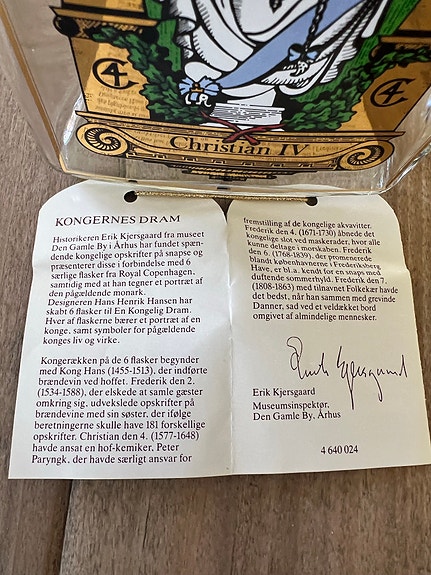 Christian IV
C4
C4
KONGERNES DRAM
Historikeren Erik Kjersgaard fra museet
Den Gamle By i Århus har fundet spæn-
dende kongelige opskrifter på snapse og
præsenterer disse i forbindelse med 6
særlige flasker fra Royal Copenhagen,
samtidig med at han tegner et portræt af
den pågældende monark.
Designeren Hans Henrik Hansen har
skabt 6 flasker til En Kongelig Dram.
Hver af flaskerne bærer et portræt af en
konge, samt symboler for pågældende
konges liv og virke.
Kongerækken på de 6 flasker begynder
med Kong Hans (1455-1513), der indførte
brændevin ved hoffet. Frederik den 2.
(1534-1588), der elskede at samle gæster
omkring sig, udvekslede opskrifter på
brændevine med sin søster, der ifølge
beretningerne skulle have 181 forskellige
opskrifter. Christian den 4. (1577-1648)
havde ansat en hof-kemiker, Peter
Paryngk, der havde særligt ansvar for
fremstilling af de kongelige akvavitter.
Frederik den 4. (1671-1730) åbnede det
kongelige slot ved maskerader, hvor alle
kunne deltage i morskaben. Frederik
den 6. (1768-1839), der promenerede
blandt københavnerne i Frederiksberg
Have, er bl.a. kendt for en snaps med
duftende sommerhyld. Frederik den 7.
(1808-1863) med tilnavnet Folkekær havde
det bedst, når han sammen med grevinde
Danner, sad ved et veldækket bord
omgivet af almindelige mennesker.
Erik Kjersgaard
Erik Kjersgaard
Museumsinspektør,
Den Gamle By, Århus
4 640 024